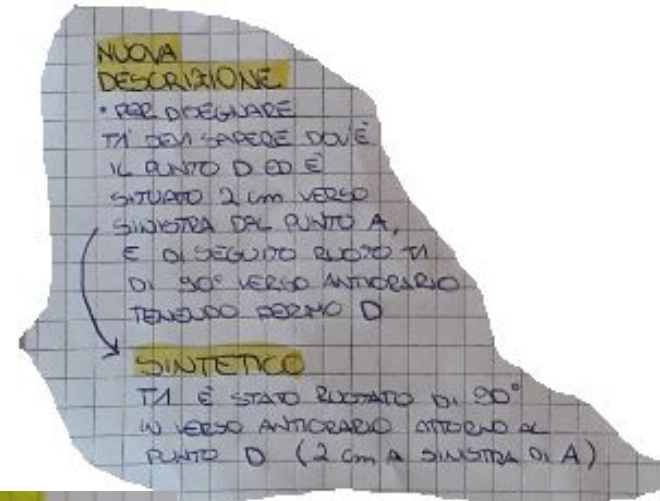 NUOVA
DESCRIZIONE
• PER DISEGNARE
T1' DEVI SAPERE DOV'È
IL PUNTO D ED È
SITUATO 2 cm VERSO
SINISTRA DAL PUNTO A,
E DI SEGUITO RUOTO T1
DI 90° VERSO ANTIORARIO
TENENDO FERMO D
SINTETICO
T1 È STATO RUOTATO DI 90°
IN VERSO ANTIORARIO ATTORNO AL
PUNTO D (2 cm A SINISTRA DI A)